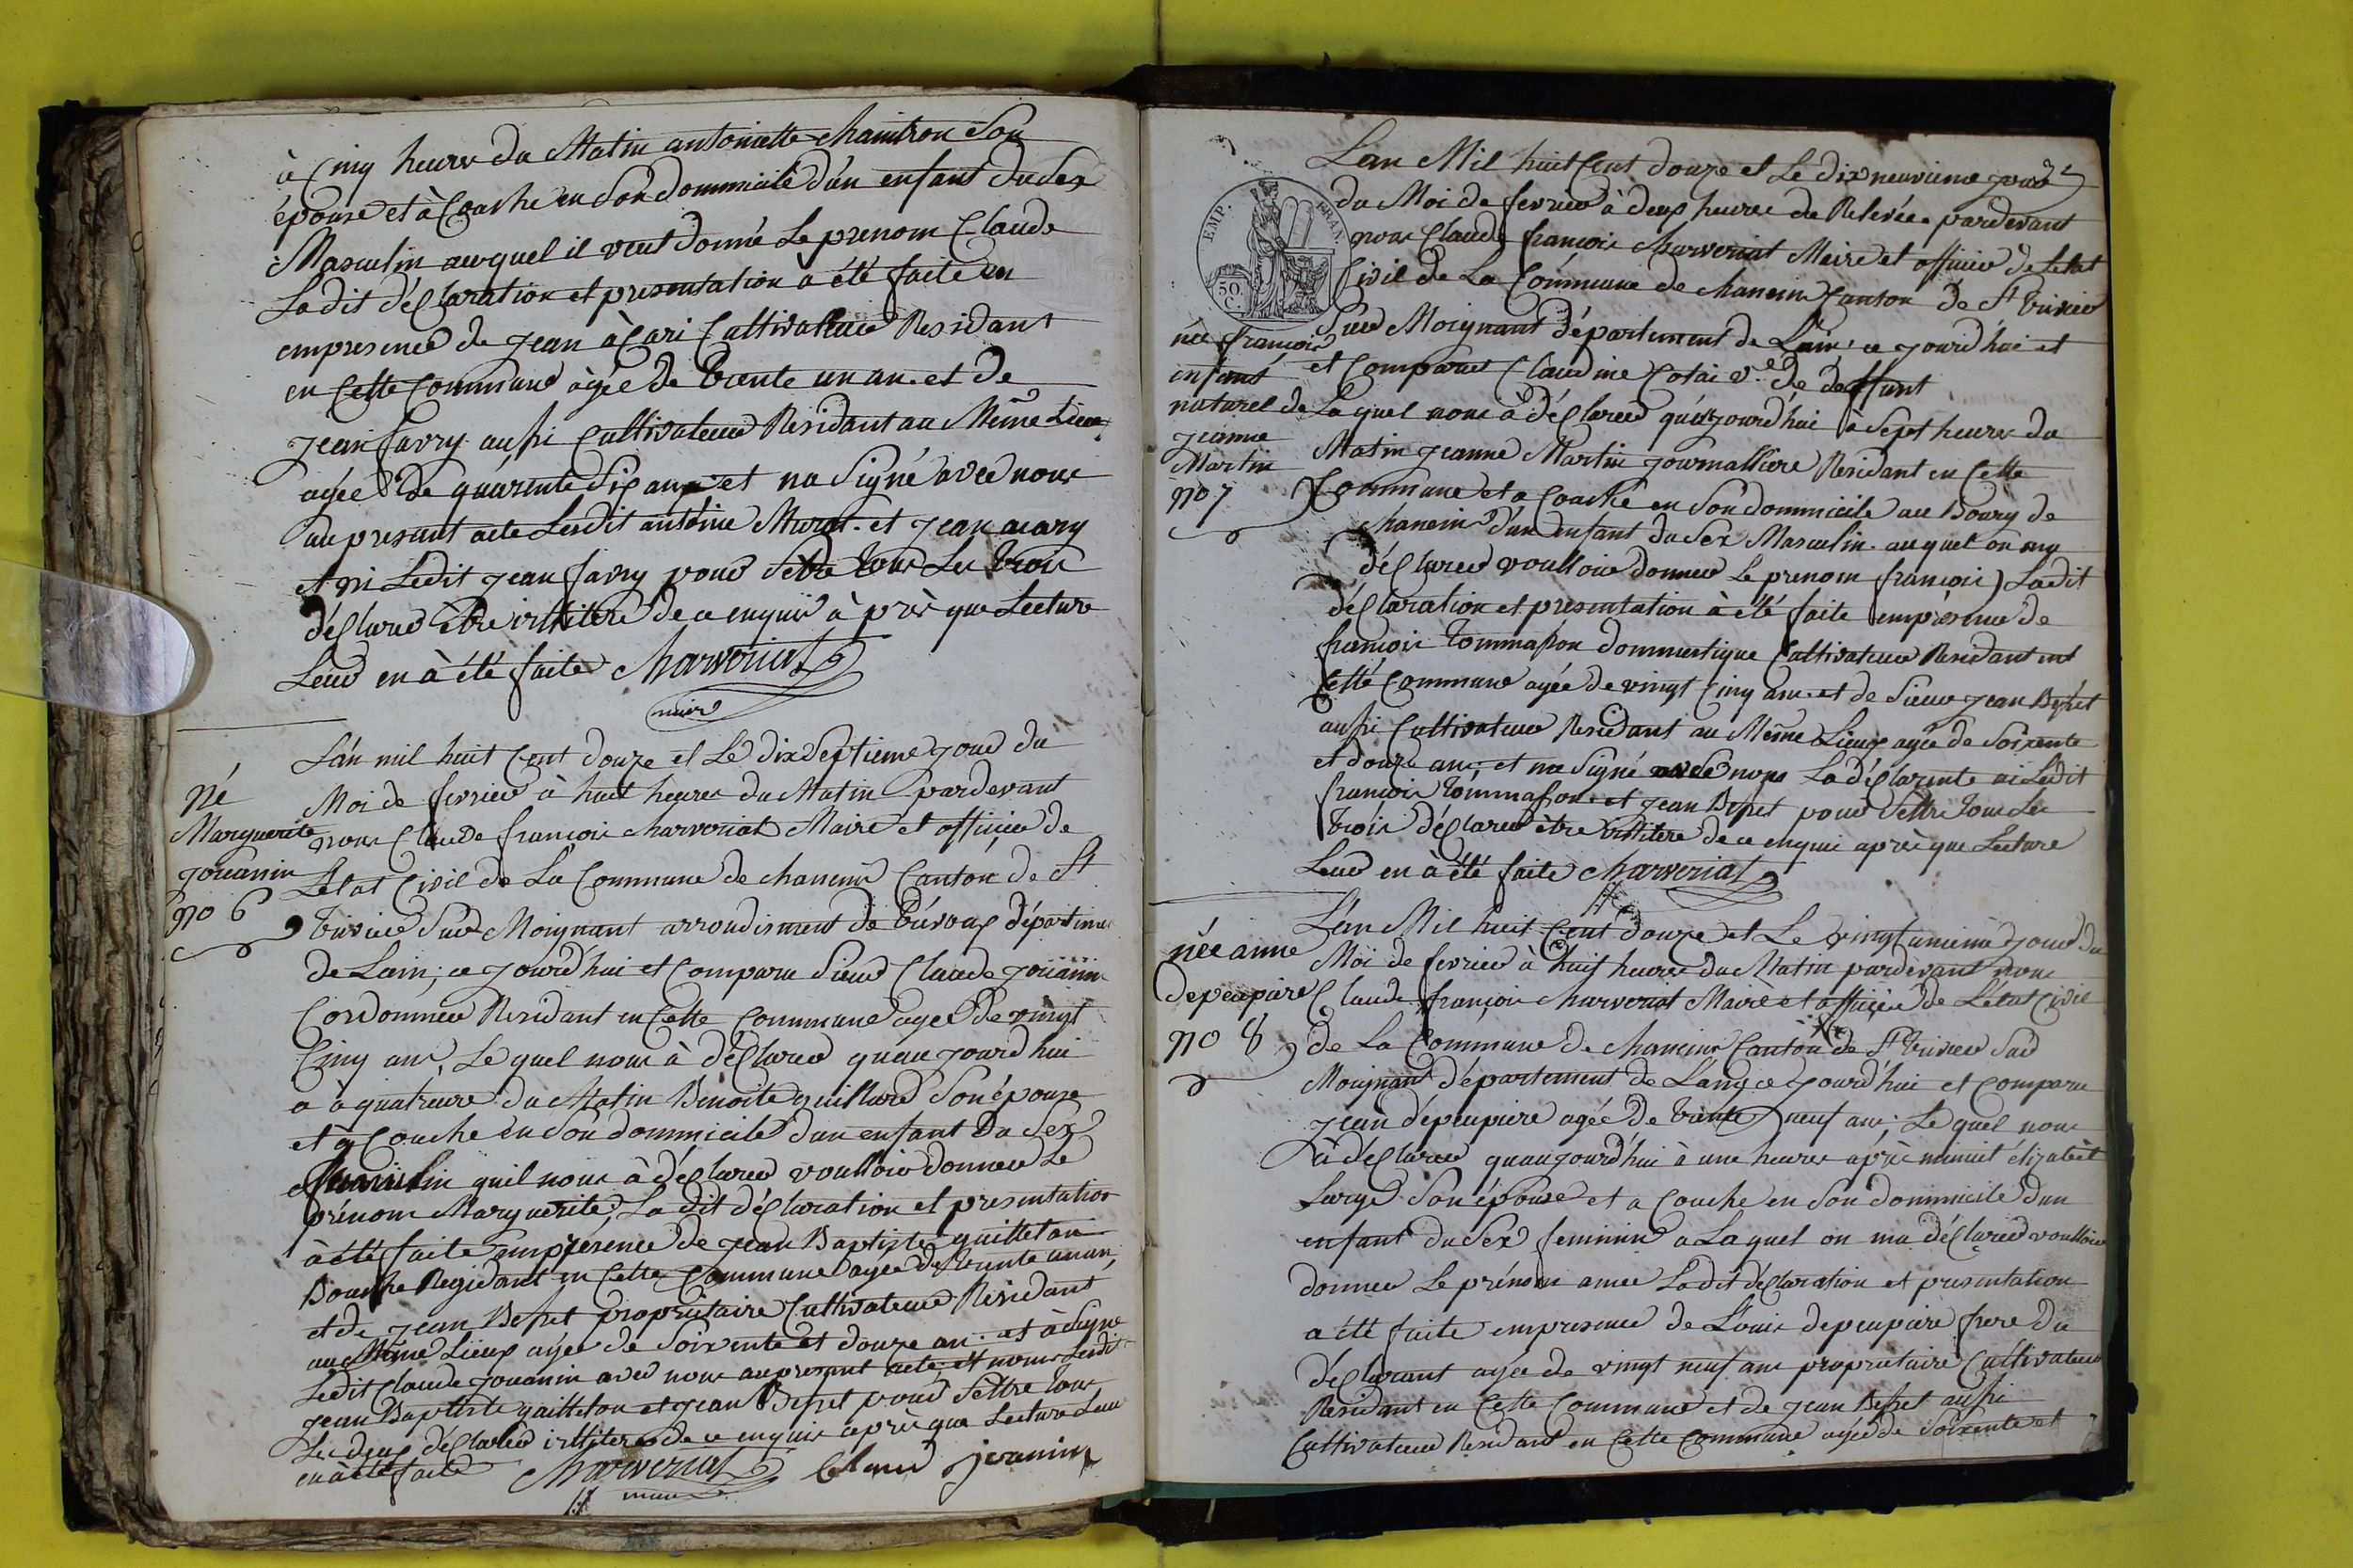 à Cinq heures du Matin antoinette chamtron Son
épouse et à Couché en Son dommicile d'un enfant du Sex
Masculin auquel il veut donné Le prenom Claude
Ladit déClaration et presentation a été faite en
empresence de jean àCari Cultivateur Residant
en Cette Commune âgée de trente un an. et de
jean favry aussi Cultivateur Residant au Même Lieux
agée de quarente Six ans et na Signé avec nous
au present acte Lesdit antoine Murat. et jean acary
et ni Ledit jean favry pour Sêtre tous Les trois
déClaré être illitéré de ce enquis à près que Lecture
Leur en à été faite Charveriat
maire
né
Marguerite
jouanin
no 6
L'an mil huit Cent douze et Le dix Septieme jour du
Moi de fevrier à huit heures du Matin pardevant
nous Claude françois charveriat Maire et officier de
Letat Civil de La Commune de chanein Canton de St
trivier Sur Moignant arrondisment de trévoux départime
de Lain; ce jourd'hui et Comparu Sieur Claude jouanin
Cordonnier Residant en Cette Commune agée de vingt
Cinq ans, Le quel nous à déClaré quaujourdhui
a à quatreure du Matin Benoite guillard Son épouse
et à Couche en Son dommicile dun enfant Du Sex
feminin quil nous à déClaré voulloir donner Le
prénom Marguerite, La dit déClaration et presentation
à été faite empresence de jean Baptiste guilleton
Residant en Cette Commune agée de trente un an,
et de jean Beset propriétaire Cultivateur Residant
au Même Lieux agée de Soixente et douze an. et à Signé
Ledit Claude jouanin avec nous au present acte et nonus Lesdit
jean Baptiste guilleton et jean Beset pour Sêttre tous
Les deux déClaré illitere de ce enquis après que Lecture Leur
en à été faite Charveriat Claud joanin
maire
32
EMP. FRAN.
50
C.
Lan Mil huit Cent douze et Le dix neuvieme jour
du Moi de fevrier à deux heures de Relevée pardevant
nous Claude françois charveriat Maire et officier de Letat
Civil de La Commune de chanein Canton de St trivier
Sur Moignant département de Lain; ce jourd'hui et
et Comparue Claudine Cotai ve de deffunt
née françois
enfant
naturel de
jeanne
Martin
no 7
Laquel nous à déClaré quaujourd'hui à Sept heures du
Matin jeanne Martin journalliere Residant en Cette
Commune et a Couché en Son dommicile au Bourg de
chanein d'un enfant du Sex Masculin. auquel on ma
déClaré voulloir donner Le prenom françois) Ladit
déClaration et presentation à été faite empresence de
françois tommasson dommestique Cultivateur Residant ent
Cette Commune agée de vingt Cinq ans. et de Sieur jean Beset
aussi Cultivateur Residant au Même Lieux agée de Soixente
et douze ans; et na Signé avec nous La déClarente ni Ledit
françois tommasson. et jean Beset pour Settre tous Les
trois déClaré être illitere de ce enquis après que Lecture
Leur en à été faite charveriat
née anne
depeupaire
no 8
L'an Mil huit Cent douze et Le vingt unieme jour du
Moi de fevrier à huit heures du Matin pardevant nous
Claude françois charveriat Maire et officier de L'état Civil
de La Commune de chanein Canton de St trivier Sur
Moignant département de L'ain; ce jourd'hui et Comparu
jean dépeupaire agée de trente neuf ans; Le quel nous
à déClaré quaujourd'hui à une heures après minuit élizabèt
Large Son épouse et a Couche en Son dommicile dun
enfant du Sex feminin a Laquel on ma déClaré voulloir
donner Le prénom anne Ladit déClaration et presentation
a été faite empresence de Louis depeupaire frere du
déClarant agée de vingt neuf ans proprietaire Cultivateur
Residant en Cette Commune et de jean Beset aussi
Cultivateur Residant en Cette Commune agée de Soixente et